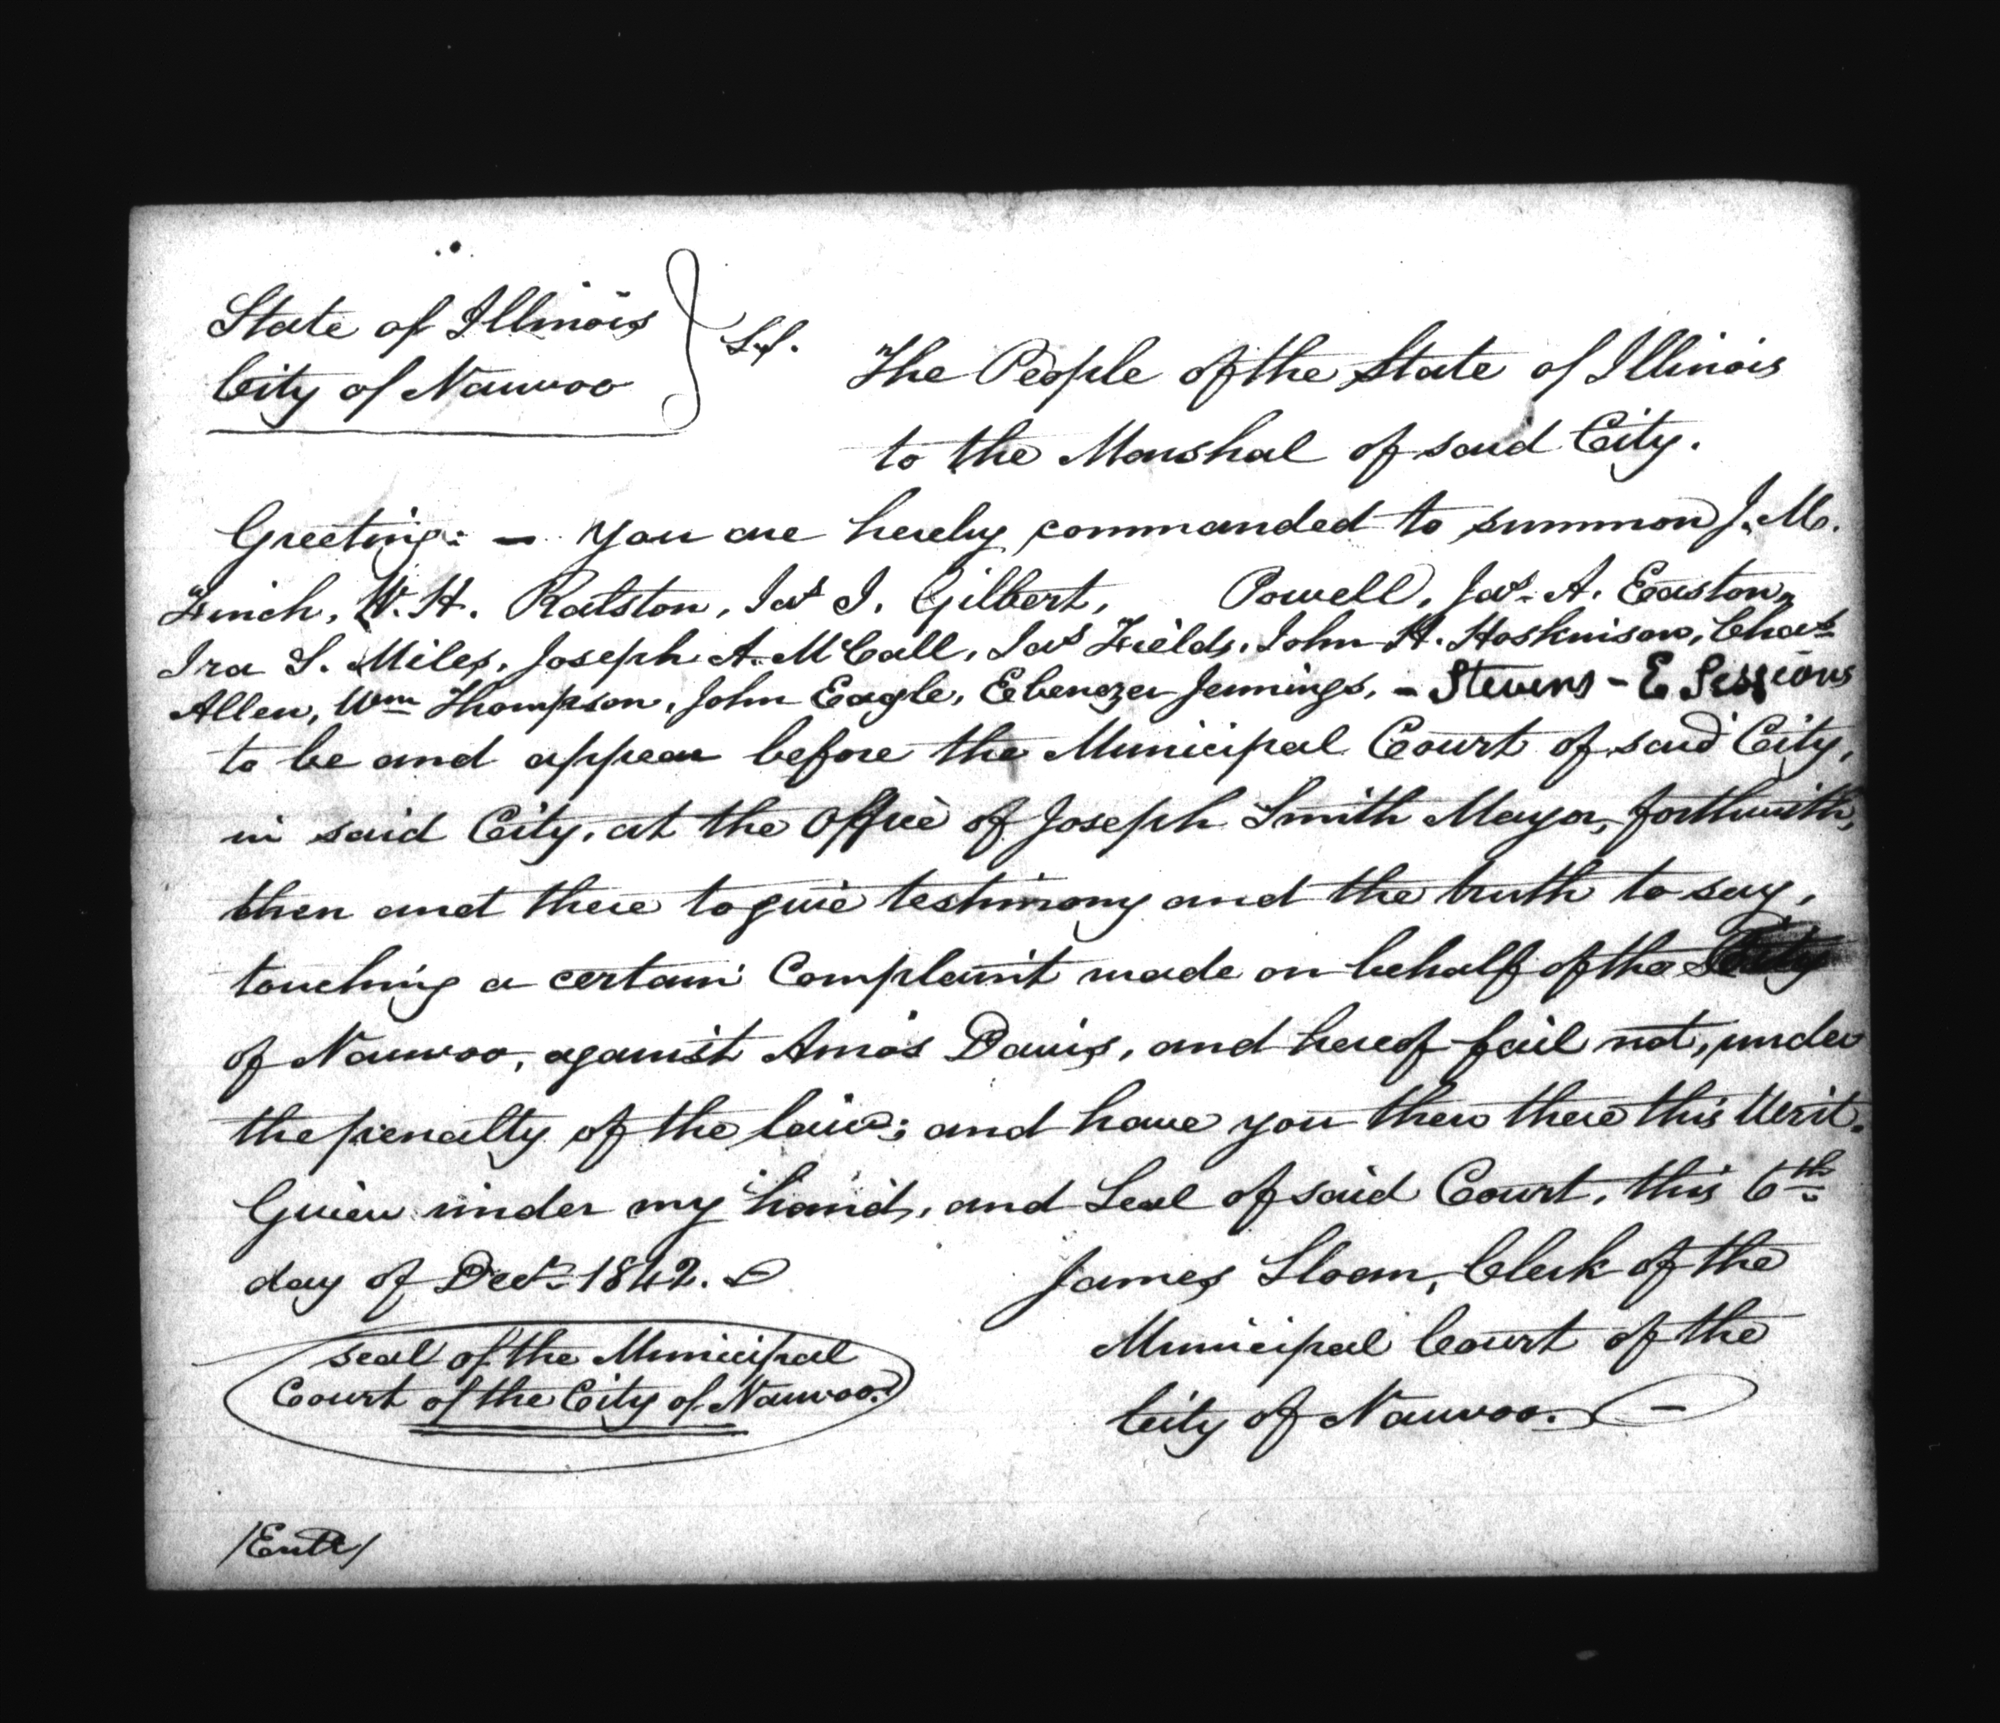 State of Illinois
City of Nauvoo } S.S.
The People of the State of Illinois
to the Marshal of said City.
Greeting: — You are hereby commanded to summon J. M.
Finch, W. H. Ralston, Jas J. Gilbert, Powell, Jas. A. Easton,
Ira S. Miles, Joseph A. McCall, Jas Fields, John H. Hoskinison, Chas
Allen, Wm Thompson, John Eagle, Ebenezer Jennings, - Stevens - E Sessions
to be and appear before the Municipal Court of said City,
in said City, at the Office of Joseph Smith Mayor, forthwith,
then and there to give testimony and the truth to say,
touching a certain Complaint made on behalf of the City
of Nauvoo, against Amos Davis, and hereof fail not, under
the penalty of the law; and have you then there this Writ.
Given under my hand, and Seal of said Court, this 6th
day of Decr. 1842.
James Sloan, Clerk of the
Municipal Court of the
City of Nauvoo.
seal of the Municipal
Court of the City of Nauvoo.